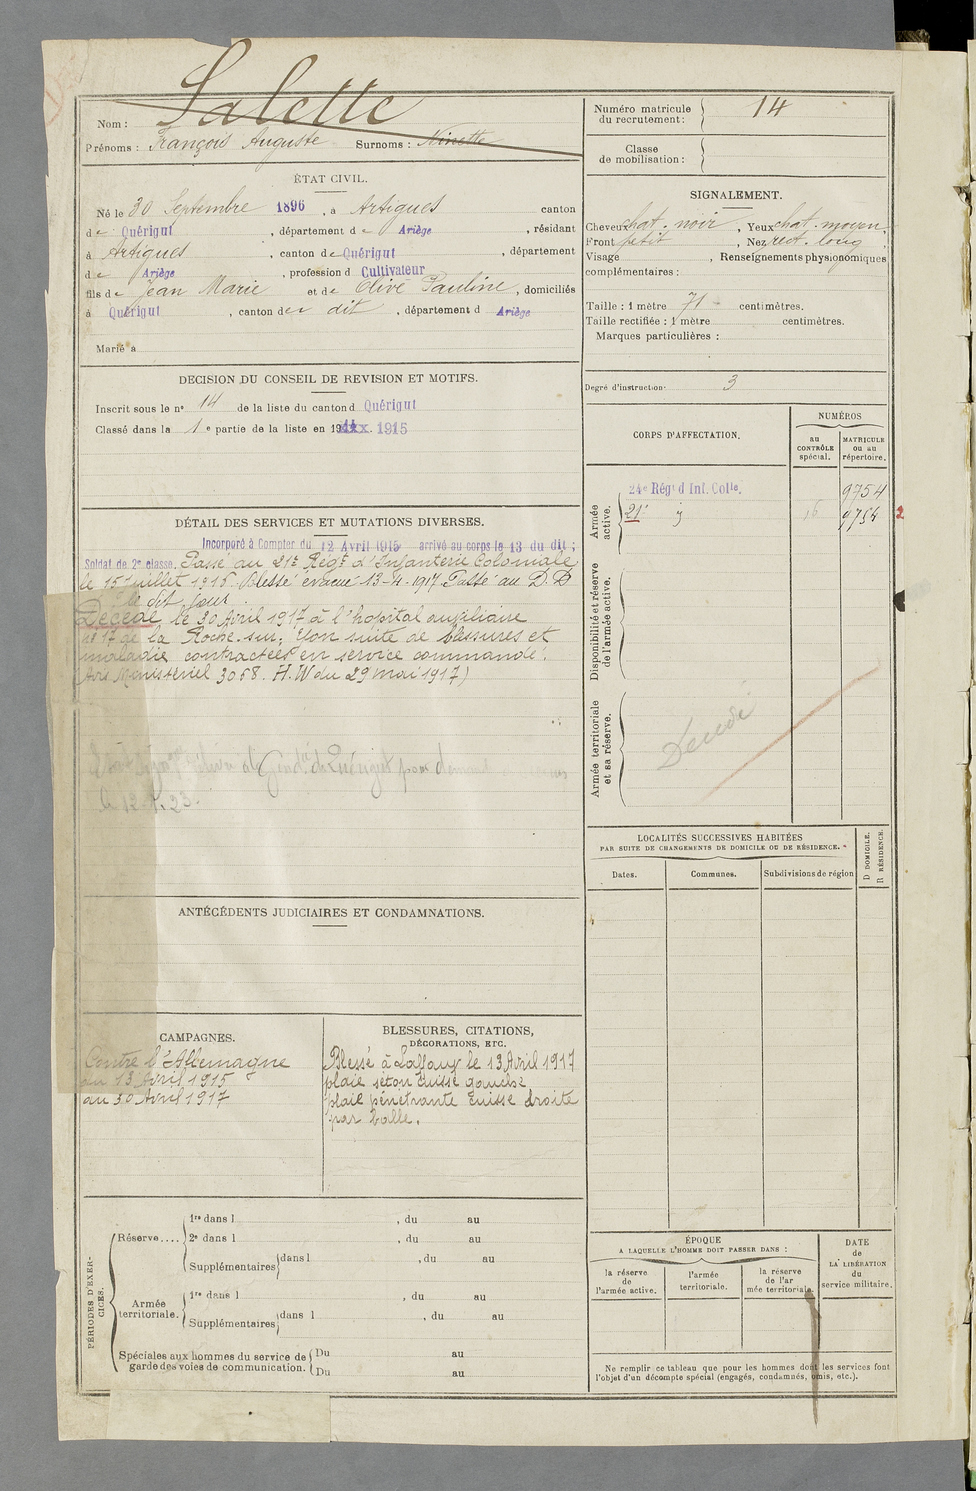 Nom : Salette
Prénoms : François Auguste Surnoms : Ninette
ÉTAT CIVIL.
Né le 30 Septembre 1896, à Artigues canton
de Quérigut, département de Ariège, résidant
à Artigues, canton de Quérigut, département
de Ariège, profession d Cultivateur
fils de Jean Marie et de Olive Pauline, domiciliés
à Quérigut, canton du dit, département d Ariège
Marié à
DECISION DU CONSEIL DE REVISION ET MOTIFS.
Inscrit sous le no 14 de la liste du canton d Quérigut
Classé dans la 1e partie de la liste en 19 1915
DÉTAIL DES SERVICES ET MUTATIONS DIVERSES.
Incorporé à Compter du 12 Avril 1915 arrivé au corps le 13 du dit ;
Soldat de 2e classe. Passé au 21e Régt d'Infanterie Coloniale
le 15 Juillet 1916. Blessé évacué 13-4-1917 Passé au D.D
le dit jour.
Décédé le 30 Avril 1917 à l'hospital auxiliaire
no 17 de la Roche-sur-Yon suite de blessures et
maladie contractées en service commandé.
Avis Ministériel 3068. H.W du 29 mai 1917)
le 12.1.23.
ANTÉCÉDENTS JUDICIAIRES ET CONDAMNATIONS.
CAMPAGNES.
Contre l'Allemagne
du 13 Avril 1915
au 30 Avril 1917
BLESSURES, CITATIONS,
DÉCORATIONS, ETC.
Blessé à Laffaux le 13 Avril 1917
plaie séton cuisse gauche
plaie pénétrante cuisse droite
par balle.
PÉRIODES D'EXERCICES.
Réserve....
1re dans l , du au
2e dans l , du au
Supplémentaires dans l , du au
Armée territoriale.
1re dans l , du au
Supplémentaires dans l , du au
Spéciales aux hommes du service de garde des voies de communication.
Du au
Du au
Numéro matricule du recrutement : 14
Classe de mobilisation :
SIGNALEMENT.
Cheveux chat. noir, Yeux chat. moyen,
Front petit, Nez rect. long
Visage , Renseignements physionomiques
complémentaires :
Taille : 1 mètre 71 centimètres.
Taille rectifiée : 1 mètre centimètres.
Marques particulières :
Degré d'instruction 3
CORPS D'AFFECTATION.
NUMÉROS
au CONTRÔLE spécial.
MATRICULE ou au répertoire.
Armée active.
24e Régt d Inf. Colle. 9754
21e 16 9754 2
Disponibilité et réserve de l'armée active.
Armée territoriale et sa réserve.
LOCALITÉS SUCCESSIVES HABITÉES
PAR SUITE DE CHANGEMENTS DE DOMICILE OU DE RÉSIDENCE.
Dates.
Communes.
Subdivisions de région
D DOMICILE.
R RÉSIDENCE.
ÉPOQUE
A LAQUELLE L'HOMME DOIT PASSER DANS :
la réserve de l'armée active.
l'armée territoriale.
la réserve de l'ar mée territoriale.
DATE de LA LIBÉRATION du service militaire.
Ne remplir ce tableau que pour les hommes dont les services font
l'objet d'un décompte spécial (engagés, condamnés, omis, etc.).